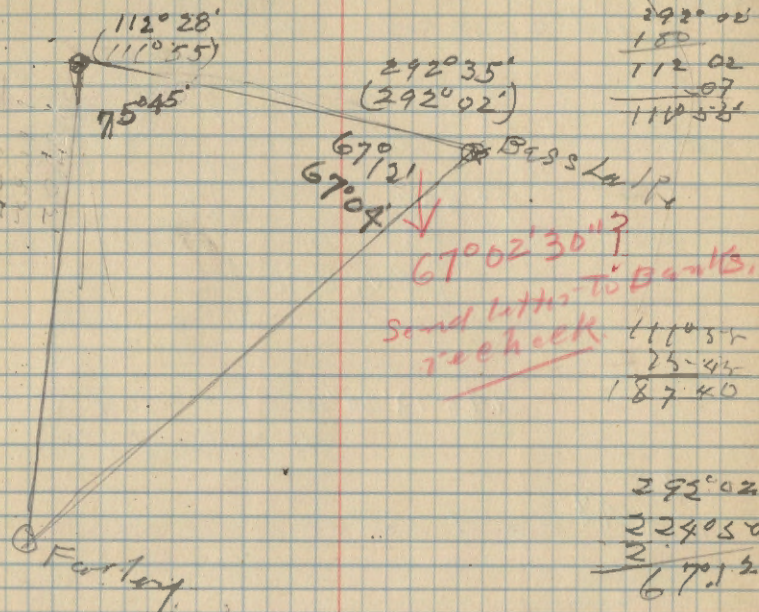 112° 28'
(111° 55')
75° 45'
292° 35'
(292° 02')
67°
12'
67° 04'
Bass
67° 02' 30" ?
Send letter To Banks.
recheck
292° 02'
180
112 02
07
111° 55'
111° 55
75-45
187 40
292° 02
224° 50
2
67.12